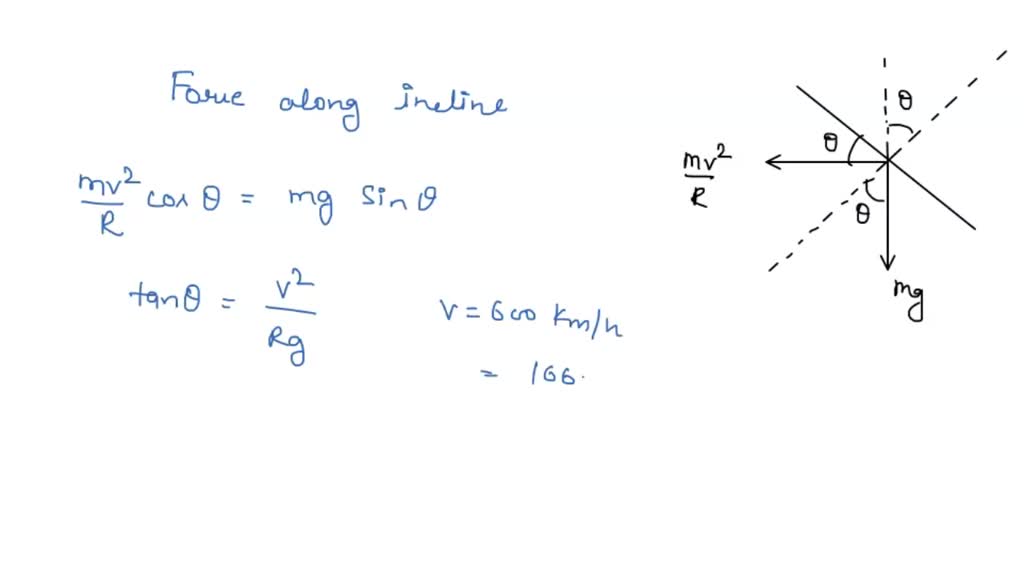 Force along incline
mv²/R cos θ = mg sin θ
tan θ = v²/Rg
v = 600 km/h
= 166.
θ
θ
mv²/R
θ
mg